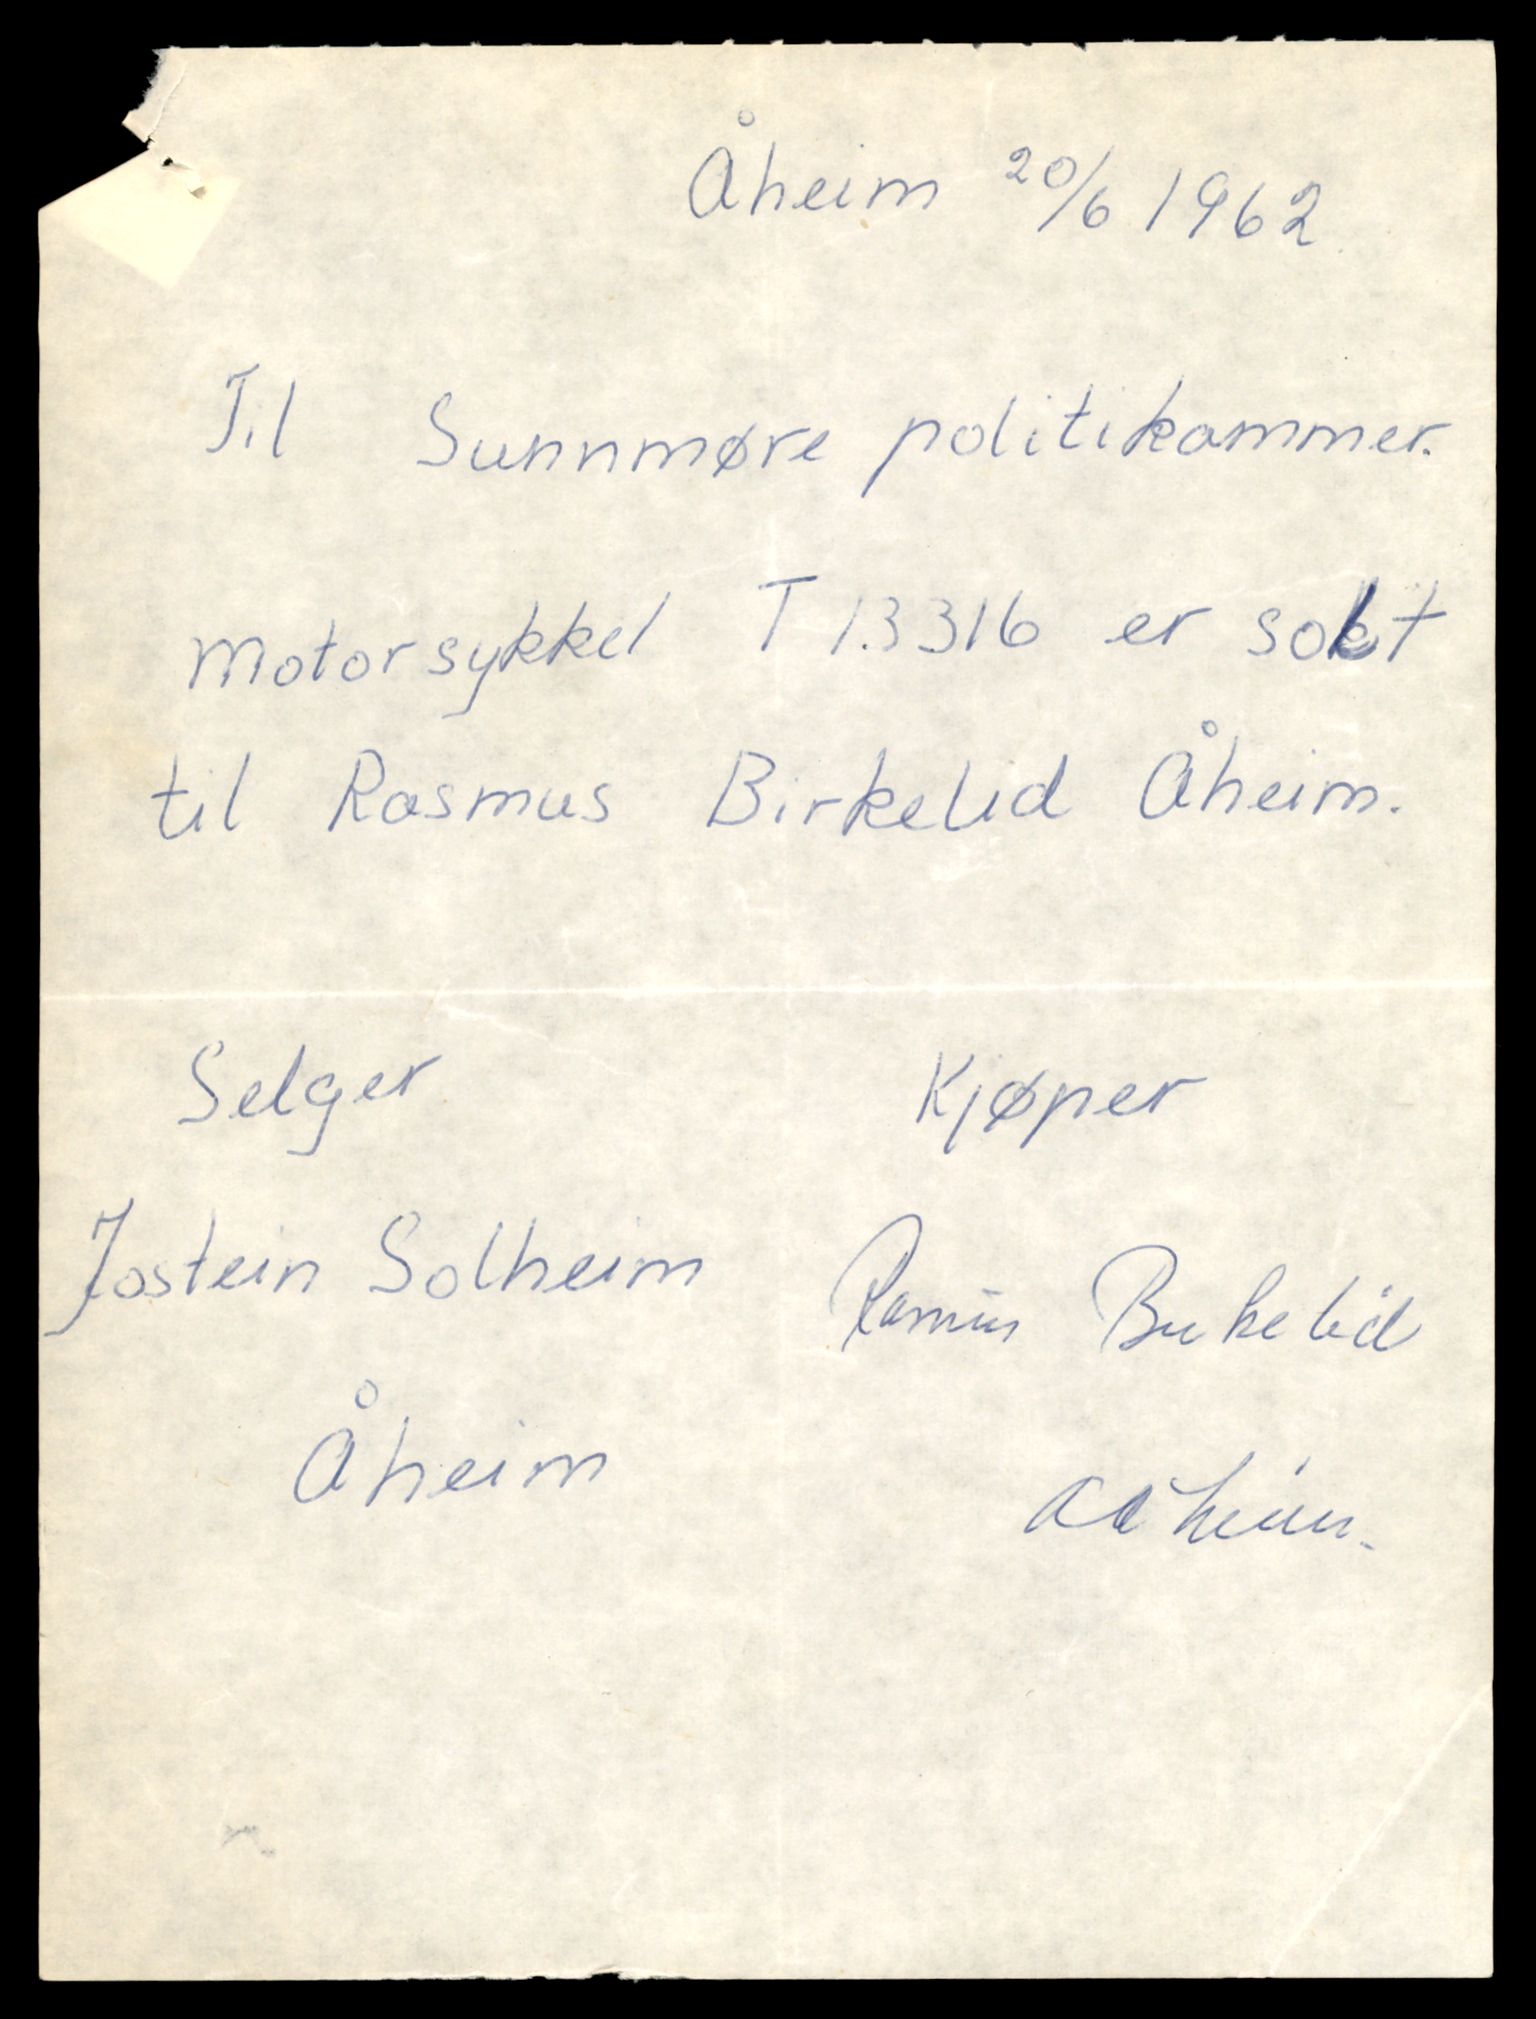 Åheim 20/6 1962
Til Sunnmøre politikammer.
Motorsykkel T 13316 er solt
til Rasmus Birkelid Åheim.
Selger Kjøper
Jostein Solheim Rasmus Birkelid
Åheim Aaheim.